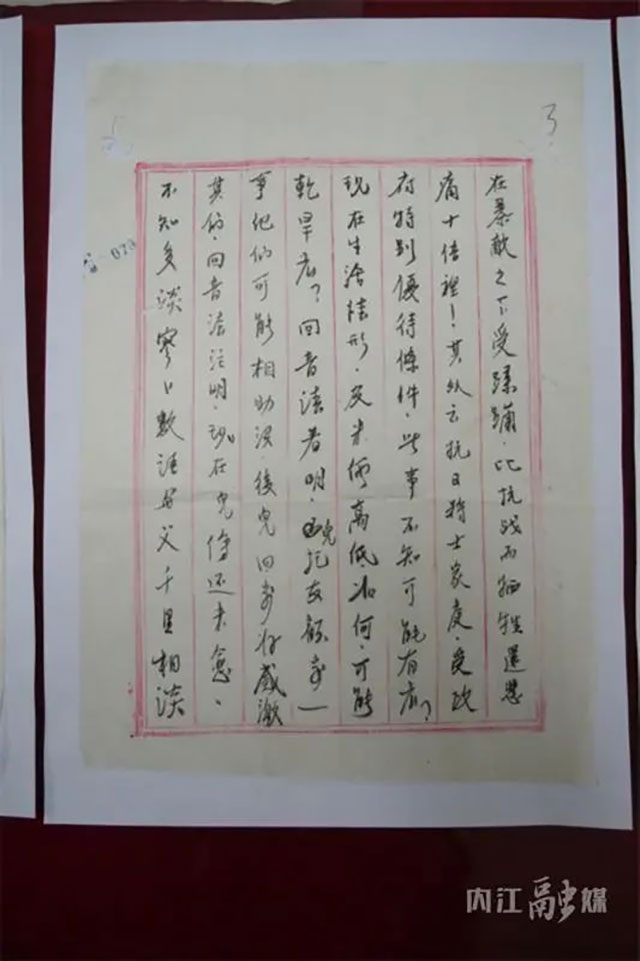 3
在暴敵之下受蹂躪．比抗战而牺牲还悲
痛十倍裡！其次云抗日將士家庭．受政
府特别優待條件．此事不知可能有否？
现在生活情形．及米價高低如何．可能
乾旱否？回音請者明．兒托友〇〇一
事他们可能相助没．後兒回家好感激
其的．回音請注明．现在兒傷还未愈．
不知多談寥寥數語與父千里相談
073
内江融媒